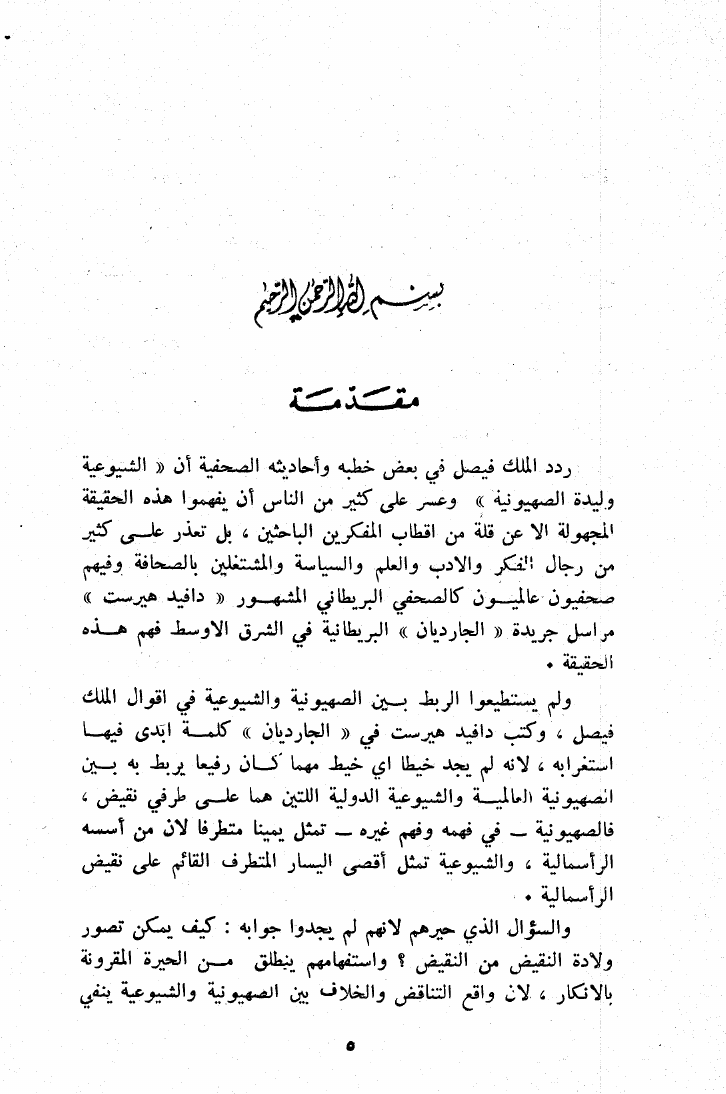 بسم الله الرحمن الرحيم
مقدمة
ردد الملك فيصل في بعض خطبه وأحاديثه الصحفية أن « الشيوعية
وليدة الصهيونية » وعسر على كثير من الناس أن يفهموا هذه الحقيقة
المجهولة الا عن قلة من اقطاب المفكرين الباحثين ، بل تعذر علـــى كثير
من رجال الفكر والادب والعلم والسياسة والمشتغلين بالصحافة وفيهم
صحفيون عالميـــون كالصحفي البريطاني المشهـــور « دافيد هيرست »
مراسل جريدة « الجارديان » البريطانية في الشرق الاوسط فهم هـــذه
الحقيقة .
ولم يستطيعوا الربط بـــين الصهيونية والشيوعية في اقوال الملك
فيصل ، وكتب دافيد هيرست في « الجارديان » كلمـــة ابدى فيهـــا
استغرابه ، لانه لم يجد خيطا اي خيط مهما كـــان رفيعا يربط به بـــين
الصهيونية العالميـــة والشيوعية الدولية اللتين هما علـــى طرفي نقيض ،
فالصهيونية ــ في فهمه وفهم غيره ــ تمثل يمينا متطرفا لان من أسسه
الرأسمالية ، والشيوعية تمثل أقصى اليسار المتطرف القائم على نقيض
الرأسمالية .
والسؤال الذي حيرهم لانهم لم يجدوا جوابه : كيف يمكن تصور
ولادة النقيض من النقيض ؟ واستفهامهم ينطلق مـــن الحيرة المقرونة
بالانكار ، لان واقع التناقض والخلاف بين الصهيونية والشيوعية ينفي
٥